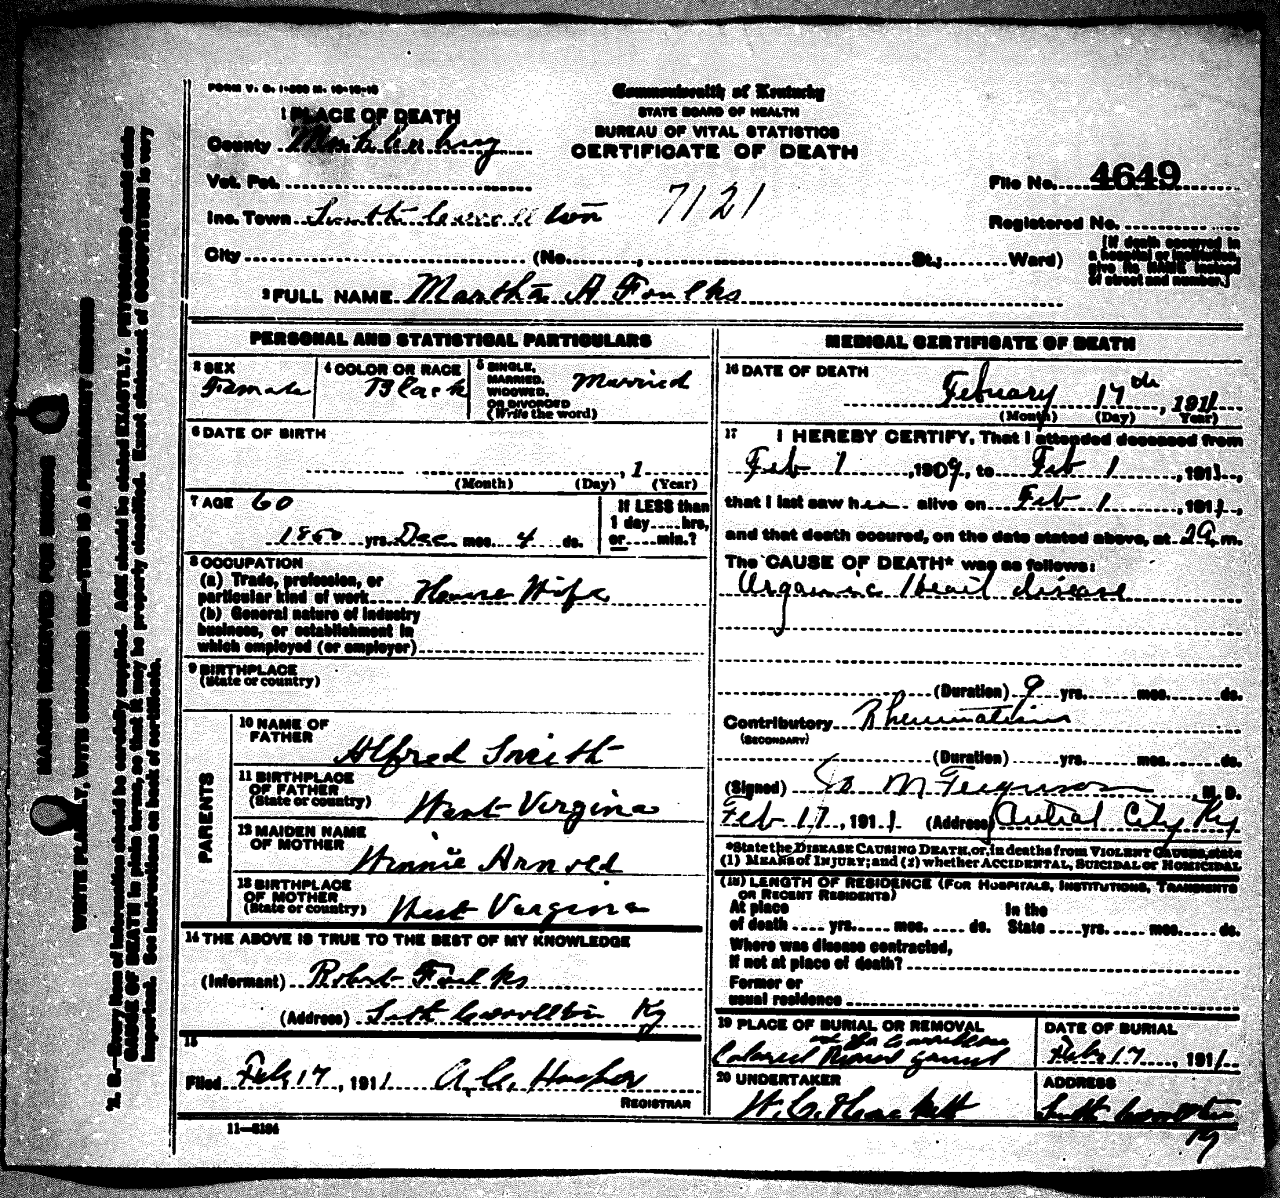 FORM V. S. 1-
Commonwealth of Kentucky
STATE BOARD OF HEALTH
BUREAU OF VITAL STATISTICS
CERTIFICATE OF DEATH
1 PLACE OF DEATH
County Muhlenburg
Vot. Pct.
Inc. Town South Carrollton 7121
City (No. , St.; Ward)
File No. 4649
Registered No.
[If death occurred in
a hospital or institution,
give its NAME instead
of street and number.]
2 FULL NAME Martha A Foulks
PERSONAL AND STATISTICAL PARTICULARS
3 SEX
Famale
4 COLOR OR RACE
Black
5 SINGLE,
MARRIED,
WIDOWED,
OR DIVORCED
(Write the word)
Married
6 DATE OF BIRTH
, 1
(Month) (Day) (Year)
7 AGE 60
1850 yrs. Dec mos. 4 ds.
If LESS than
1 day hrs,
or min.?
8 OCCUPATION
(a) Trade, profession, or
particular kind of work House Wife
(b) General nature of industry
business, or establishment in
which employed (or employer)
9 BIRTHPLACE
(State or country)
PARENTS
10 NAME OF
FATHER
Alfred Smith
11 BIRTHPLACE
OF FATHER
(State or country)
West Vergina
12 MAIDEN NAME
OF MOTHER
Winnie Arnold
13 BIRTHPLACE
OF MOTHER
(State or country)
West Vergina
14 THE ABOVE IS TRUE TO THE BEST OF MY KNOWLEDGE
(Informant) Robert Foulks
(Address) South Carrollton Ky
15
Filed Feb, 17, 1911
REGISTRAR
11—5184
MEDICAL CERTIFICATE OF DEATH
16 DATE OF DEATH
Febuary 17th, 1911
(Month) (Day) Year)
17 I HEREBY CERTIFY, That I attended deceased from
Feb 1, 1909, to Feb 1, 1911,
that I last saw her alive on Feb 1, 1911,
and that death occured, on the date stated above, at m.
The CAUSE OF DEATH* was as follows:
Organic Heart disease
(Duration) 9 yrs. mos. ds.
Contributory Rheumatism
(SECONDARY)
(Duration) yrs. mos. ds.
(Signed) M Ferguson M. D.
Feb 17, 1911 (Address) City Ky
*State the DISEASE CAUSING DEATH, or, in deaths from VIOLENT CAUSES, state
(1) MEANS of INJURY; and (2) whether ACCIDENTAL, SUICIDAL or HOMICIDAL
(18) LENGTH OF RESIDENCE (FOR HOSPITALS, INSTITUTIONS, TRANSIENTS
OR RECENT RESIDENTS)
At place
of death yrs. mos. ds.
In the
State yrs. mos. ds.
Where was disease contracted,
If not at place of death?
Former or
usual residence
19 PLACE OF BURIAL OR REMOVAL
Colored
DATE OF BURIAL
Feb. 17, 1911
20 UNDERTAKER
W. C.
ADDRESS
South Carrollton
Ky
MARGIN RESERVED FOR BINDING
WRITE PLAINLY, WITH UNFADING INK—THIS IS A PERMANENT RECORD
N. B.—Every item of information should be carefully supplied. AGE should be stated EXACTLY. PHYSICIANS should state
CAUSE OF DEATH in plain terms, so that it may be properly classified. Exact statement of OCCUPATION is very
important. See instructions on back of certificate.